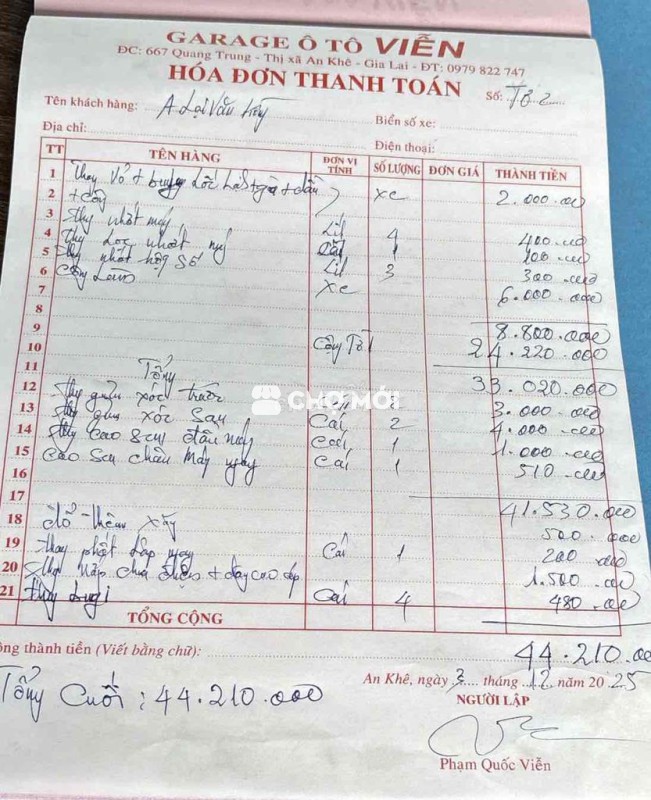 GARAGE Ô TÔ VIỄN
ĐC: 667 Quang Trung - Thị xã An Khê - Gia Lai - ĐT: 0979 822 747
HÓA ĐƠN THANH TOÁN
Số: Tờ 2
Tên khách hàng: A Lại Văn
Biển số xe:
Địa chỉ:
Điện thoại:
TT TÊN HÀNG ĐƠN VỊ TÍNH SỐ LƯỢNG ĐƠN GIÁ THÀNH TIỀN
1 Thay vỏ + lốc + dầu
2 + công xe 2.000.000
3 Thay nhớt máy
4 Thay lọc nhớt máy Lít 4 400.000
5 Thay nhớt hộp số 1 100.000
6 Công Làm Lít 3 300.000
7 Xe 6.000.000
8
9 8.800.000
10 Cộng Tờ 1 24.220.000
11 Tổng
12 Thay giảm xóc trước 33.020.000
13 Thay giảm xóc sau 3.000.000
14 Thay cao su đầu máy Cái 2 4.000.000
15 Cao su chân máy ngay Cái 1 1.000.000
16 Cái 1 510.000
17
18 Đổ thêm xăng 41.530.000
19 Thay phớt lắp ngay 500.000
20 Thay nắp chia điện + dây cao áp Cái 1 200.000
21 Thay bugi 1.500.000
Cái 4 480.000
TỔNG CỘNG
ộng thành tiền (Viết bằng chữ): 44.210.000
Tổng Cuối: 44.210.000
An Khê, ngày 3 tháng 12 năm 2025
NGƯỜI LẬP
Phạm Quốc Viễn
CHỢ MỚI